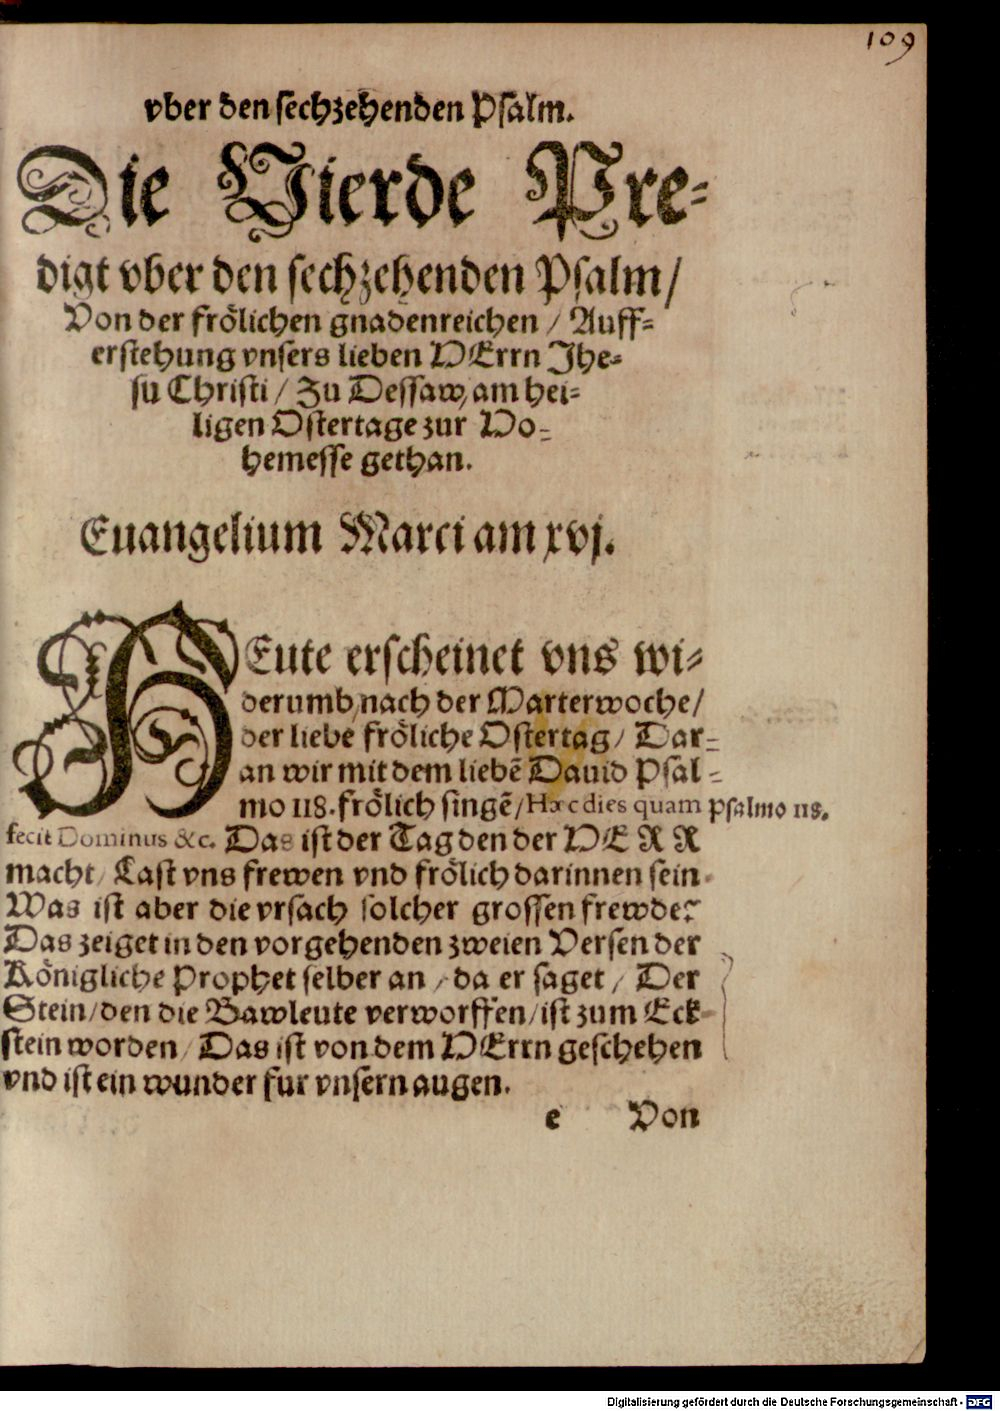 109
vber den sechzehenden Psalm.
Die Vierde Pre-
digt vber den sechzehenden Psalm/
Von der frölichen gnadenreichen / Auff-
erstehung vnsers lieben HErrn Jhe-
su Christi / Zu Dessaw, am hei-
ligen Ostertage zur Ho-
hemesse gethan.
Euangelium Marci am xvj.
HEute erscheinet vns wi-
derumb/nach der Marterwoche/
der liebe fröliche Ostertag/ Dar-
an wir mit dem liebē Dauid Psal-
mo 118. frölich singē/Hæc dies quam
Psalmo 118.
fecit Dominus &c. Das ist der Tag den der HERR
macht/ Last vns frewen vnd frölich darinnen sein.
Was ist aber die vrsach solcher grossen frewde?
Das zeiget in den vorgehenden zweien Versen der
Königliche Prophet selber an / da er saget / Der
Stein/den die Bawleute verworffen/ist zum Eck-
stein worden/ Das ist von dem HErrn geschehen
vnd ist ein wunder fur vnsern augen.
e Von
Digitalisierung gefördert durch die Deutsche Forschungsgemeinschaft - DFG